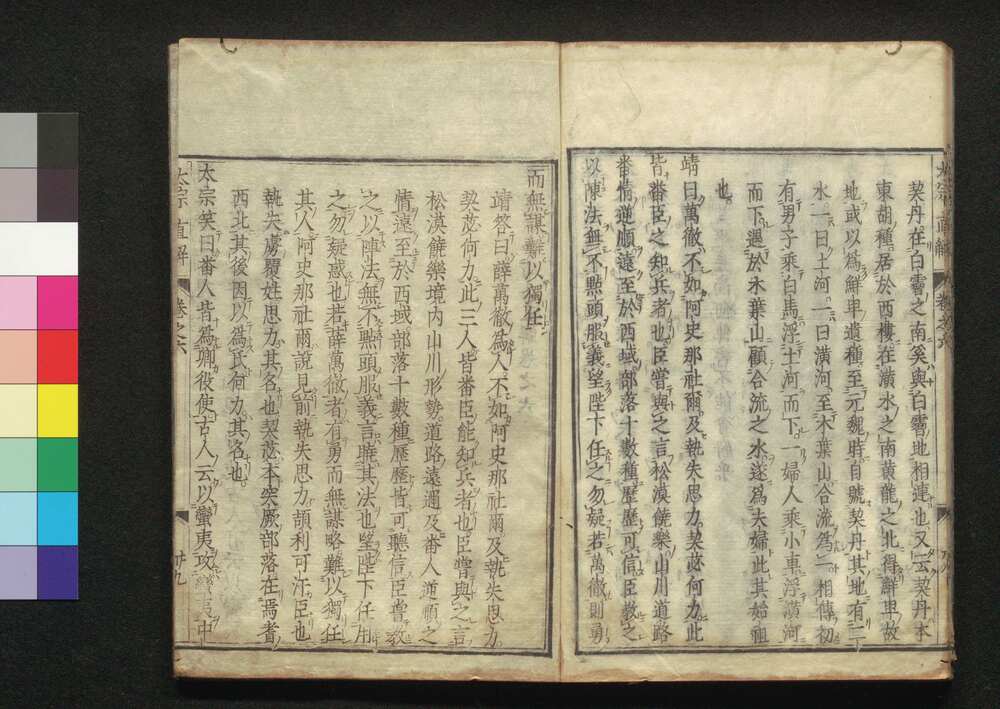 契丹在白霫之南奚與白霫地相連也又云契丹本
東胡種居於西樓在潢水之南黃龍之北得鮮卑故
地或以爲鮮卑遺種至元魏時自號契丹其地有二
水一曰土河一曰潢河至木葉山合流爲一相傳初
有男子乘白馬浮土河而下一婦人乘小車浮潢河
而下遇於木葉山顧合流之水遂爲夫婦此其始祖
也
靖曰萬徹不如阿史那社爾及執失思力契苾何力此
皆番臣之知兵者也臣嘗與之言松漠饒樂山川道路
番情逆順遠至於西域部落十數種歷歷可信臣教之
以陣法無不點頭服義望陛下任之勿疑若萬徹則勇
而無謀難以獨任
靖答曰薛萬徹爲人不如阿史那社爾及執失思力
契苾何力此三人皆番臣能知兵者也臣嘗與之言
松漠饒樂境内山川形勢道路遠邇及番人逆順之
情遠至於西域部落十數種歷歷皆可聽信臣嘗教
之以陣法無不點頭服義言曉其法也望陛下任用
之勿疑惑也若薛萬徹者有勇而無謀略難以獨任
其人阿史那社爾說見前執失思力頡利可汗臣也
執失虜覆姓思力其名也契苾本突厥部落在焉耆
西北其後因以爲氏何力其名也
太宗笑曰番人皆爲卿役使古人云以蠻夷攻蠻夷中
太宗直解 卷之六 廿九